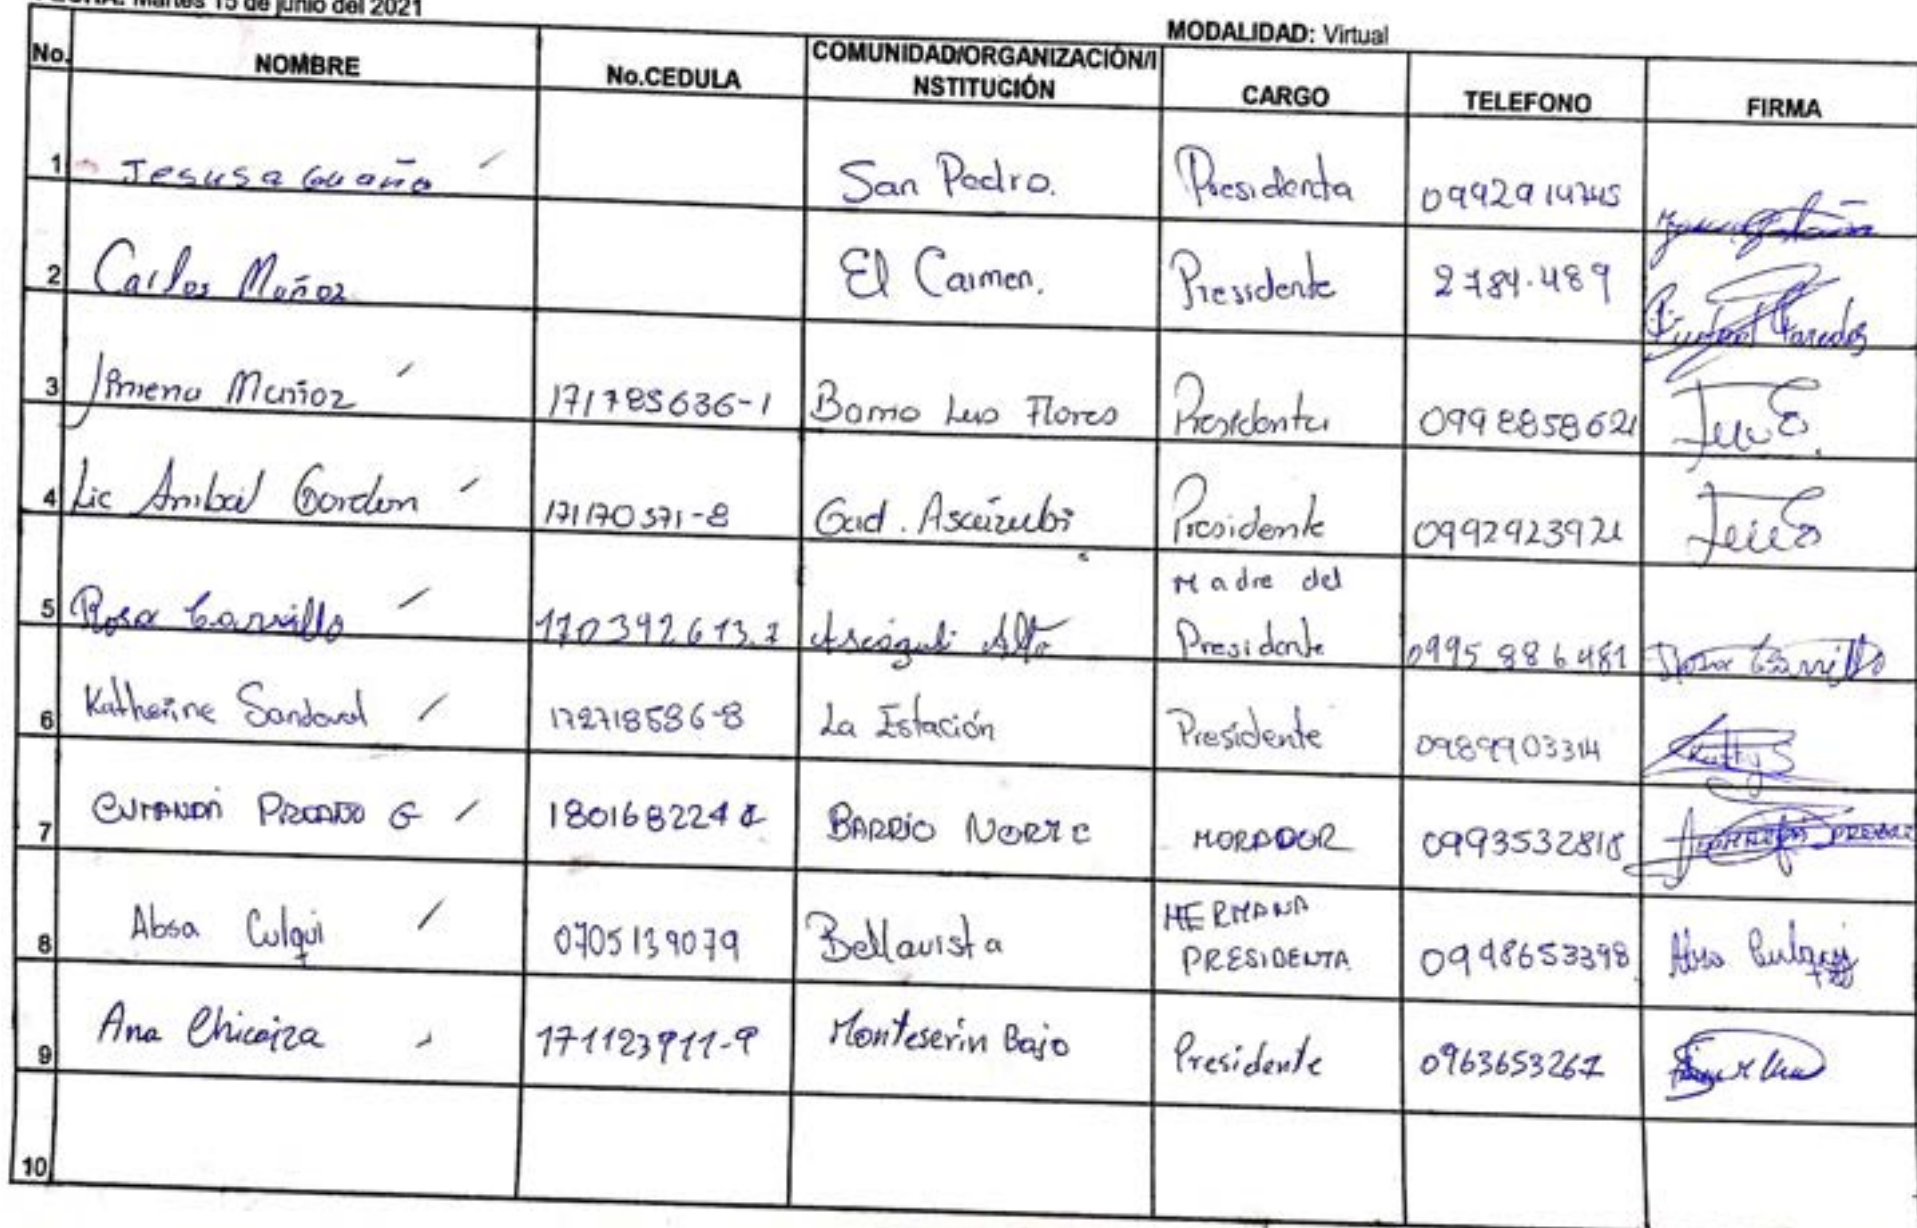 FECHA: Martes 15 de junio del 2021
MODALIDAD: Virtual
No. NOMBRE No.CEDULA COMUNIDAD/ORGANIZACIÓN/I NSTITUCIÓN CARGO TELEFONO FIRMA
1 Jesusa Guaña San Pedro. Presidenta 0992914745
2 Carlos Muñoz El Carmen. Presidente 2784-489
3 Jimena Muñoz 171785636-1 Barrio Luis Flores Presidenta 0998858621
4 Lic Anibal Gordon 171170571-8 Gad. Ascázubi Presidente 0992923921
5 Rosa Carrillo 170392613.7 Ascázubi Alto Madre del Presidente 0995886481 Rosa Carrillo
6 Katherine Sandoval 172718586-8 La Estación Presidente 0989903314 Katty S
7 CUMANDÁ PROAÑO G BARRIO NORTE MORADOR 0993532818
8 Absa Culqui 0705139079 Bellavista HERMANA PRESIDENTA 0998653398 Absa Culqui
9 Ana Chicaiza 171123911-9 Monteserín Bajo Presidente 0963653267
10